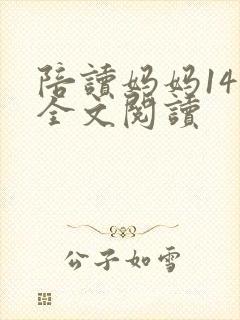 陪讀妈妈14
全文閱讀
公子如雪